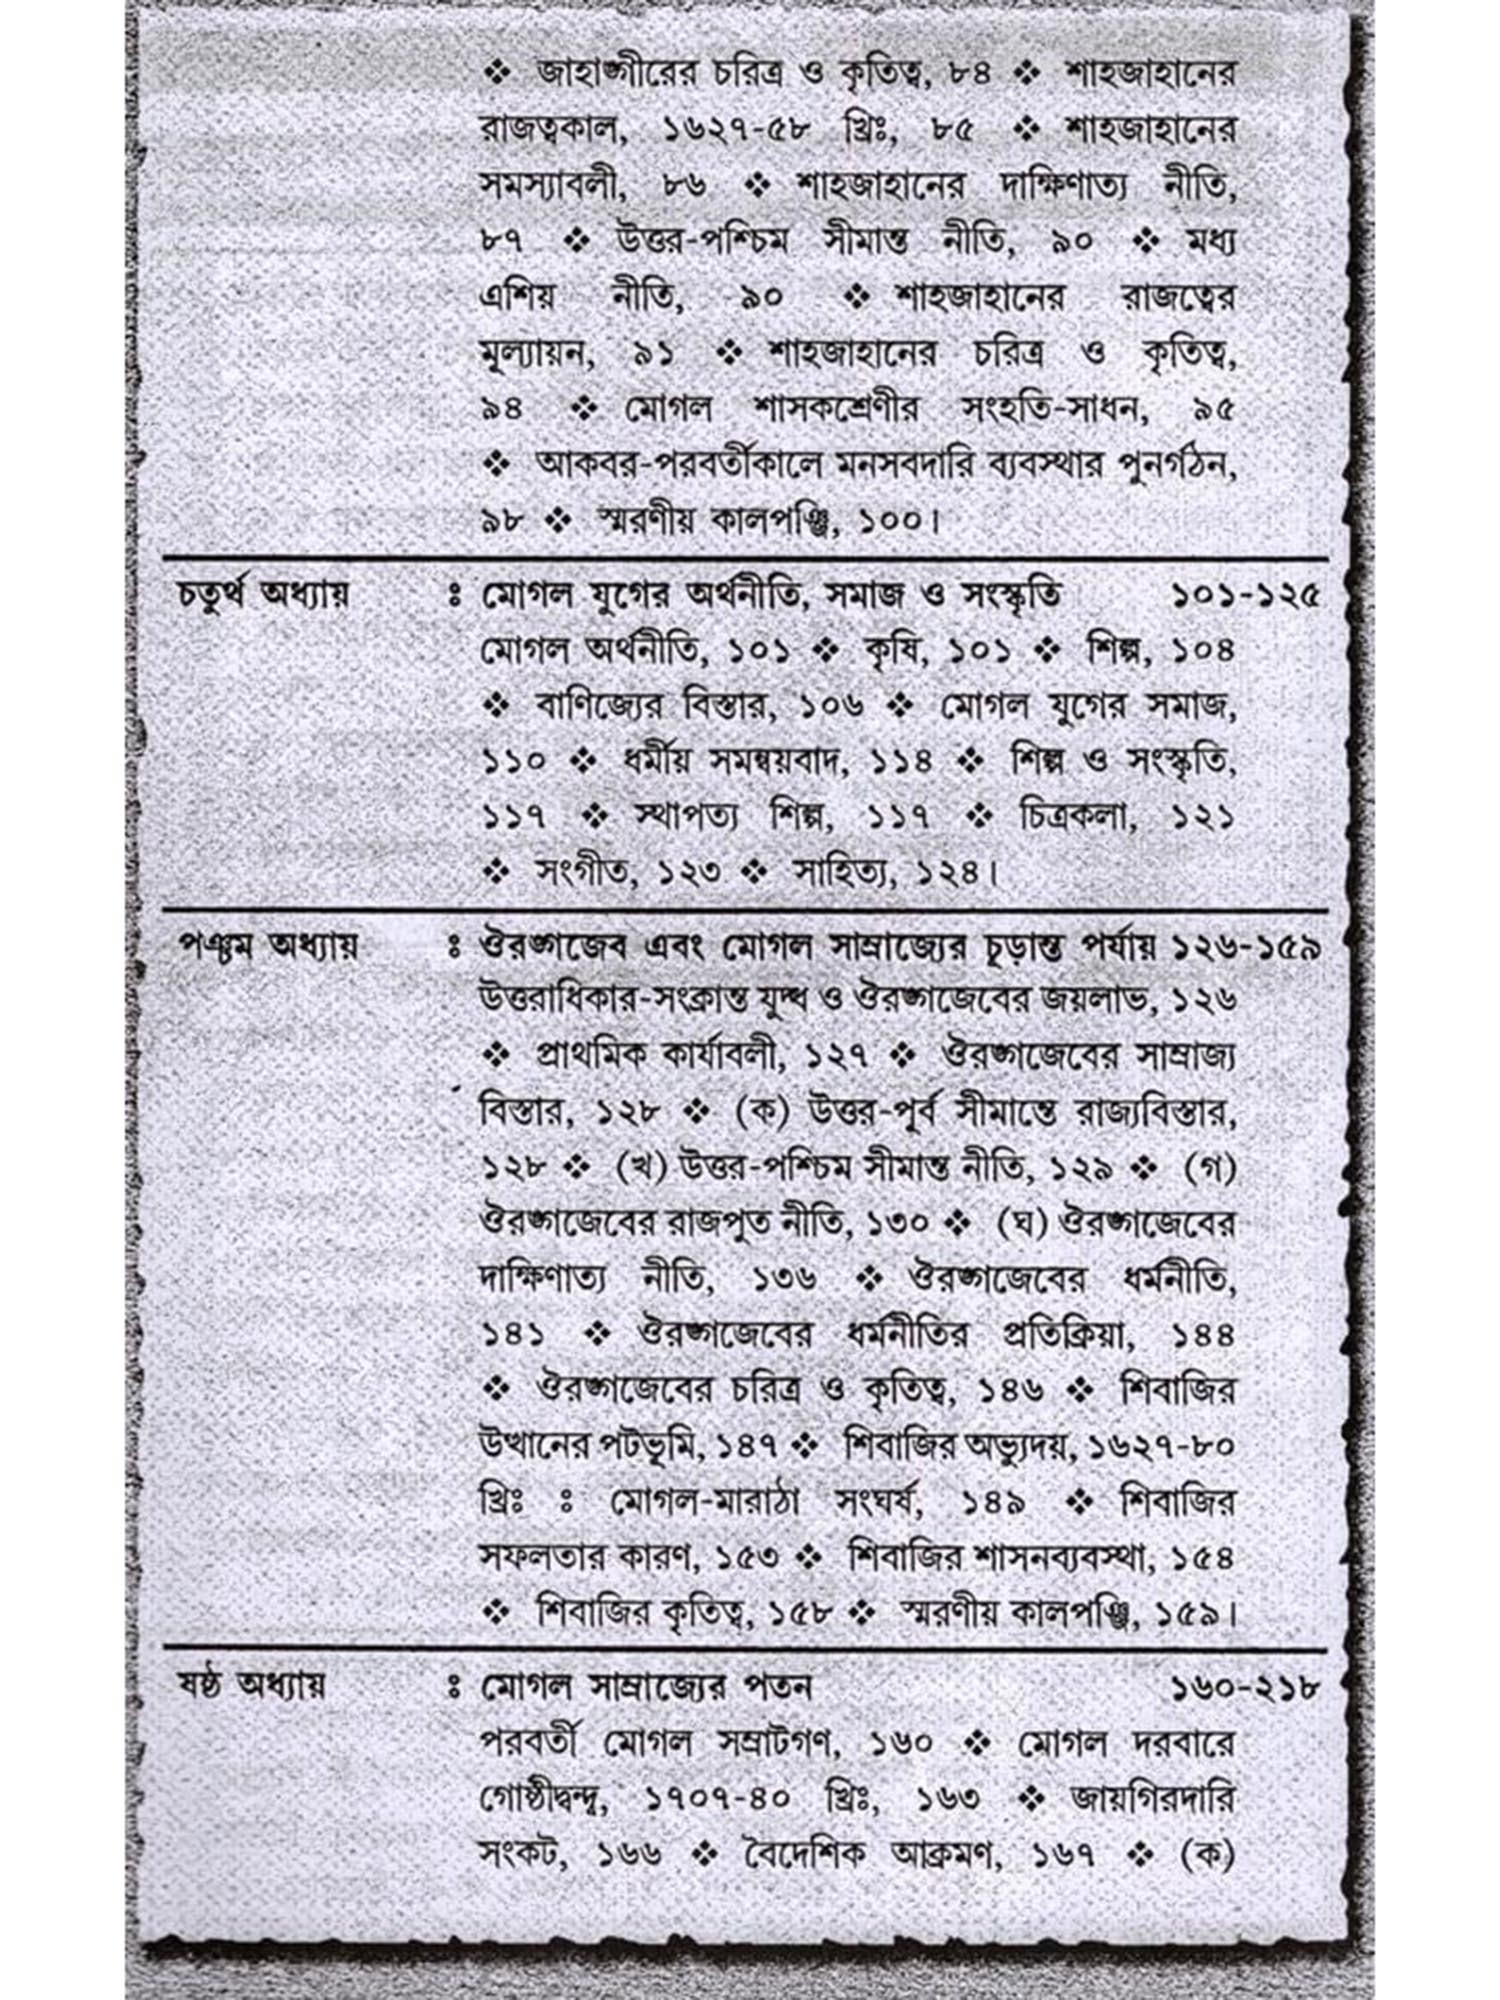 ❖ জাহাঙ্গীরের চরিত্র ও কৃতিত্ব, ৮৪ ❖ শাহজাহানের
রাজত্বকাল, ১৬২৭-৫৮ খ্রিঃ, ৮৫ ❖ শাহজাহানের
সমস্যাবলী, ৮৬ ❖ শাহজাহানের দাক্ষিণাত্য নীতি,
৮৭ ❖ উত্তর-পশ্চিম সীমান্ত নীতি, ৯০ ❖ মধ্য
এশিয় নীতি, ৯০ ❖ শাহজাহানের রাজত্বের
মূল্যায়ন, ৯১ ❖ শাহজাহানের চরিত্র ও কৃতিত্ব,
৯৪ ❖ মোগল শাসকশ্রেণীর সংহতি-সাধন, ৯৫
❖ আকবর-পরবর্তীকালে মনসবদারি ব্যবস্থার পুনর্গঠন,
৯৮ ❖ স্মরণীয় কালপঞ্জি, ১০০।
চতুর্থ অধ্যায় ঃ মোগল যুগের অর্থনীতি, সমাজ ও সংস্কৃতি ১০১-১২৫
মোগল অর্থনীতি, ১০১ ❖ কৃষি, ১০১ ❖ শিল্প, ১০৪
❖ বাণিজ্যের বিস্তার, ১০৬ ❖ মোগল যুগের সমাজ,
১১০ ❖ ধর্মীয় সমন্বয়বাদ, ১১৪ ❖ শিল্প ও সংস্কৃতি,
১১৭ ❖ স্থাপত্য শিল্প, ১১৭ ❖ চিত্রকলা, ১২১
❖ সংগীত, ১২৩ ❖ সাহিত্য, ১২৪।
পঞ্চম অধ্যায় ঃ ঔরঙ্গজেব এবং মোগল সাম্রাজ্যের চূড়ান্ত পর্যায় ১২৬-১৫৯
উত্তরাধিকার-সংক্রান্ত যুদ্ধ ও ঔরঙ্গজেবের জয়লাভ, ১২৬
❖ প্রাথমিক কার্যাবলী, ১২৭ ❖ ঔরঙ্গজেবের সাম্রাজ্য
বিস্তার, ১২৮ ❖ (ক) উত্তর-পূর্ব সীমান্তে রাজ্যবিস্তার,
১২৮ ❖ (খ) উত্তর-পশ্চিম সীমান্ত নীতি, ১২৯ ❖ (গ)
ঔরঙ্গজেবের রাজপুত নীতি, ১৩০ ❖ (ঘ) ঔরঙ্গজেবের
দাক্ষিণাত্য নীতি, ১৩৬ ❖ ঔরঙ্গজেবের ধর্মনীতি,
১৪১ ❖ ঔরঙ্গজেবের ধর্মনীতির প্রতিক্রিয়া, ১৪৪
❖ ঔরঙ্গজেবের চরিত্র ও কৃতিত্ব, ১৪৬ ❖ শিবাজির
উত্থানের পটভূমি, ১৪৭ ❖ শিবাজির অভ্যুদয়, ১৬২৭-৮০
খ্রিঃ ঃ মোগল-মারাঠা সংঘর্ষ, ১৪৯ ❖ শিবাজির
সফলতার কারণ, ১৫৩ ❖ শিবাজির শাসনব্যবস্থা, ১৫৪
❖ শিবাজির কৃতিত্ব, ১৫৮ ❖ স্মরণীয় কালপঞ্জি, ১৫৯।
ষষ্ঠ অধ্যায় ঃ মোগল সাম্রাজ্যের পতন ১৬০-২১৮
পরবর্তী মোগল সম্রাটগণ, ১৬০ ❖ মোগল দরবারে
গোষ্ঠীদ্বন্দ্ব, ১৭০৭-৪০ খ্রিঃ, ১৬৩ ❖ জায়গিরদারি
সংকট, ১৬৬ ❖ বৈদেশিক আক্রমণ, ১৬৭ ❖ (ক)